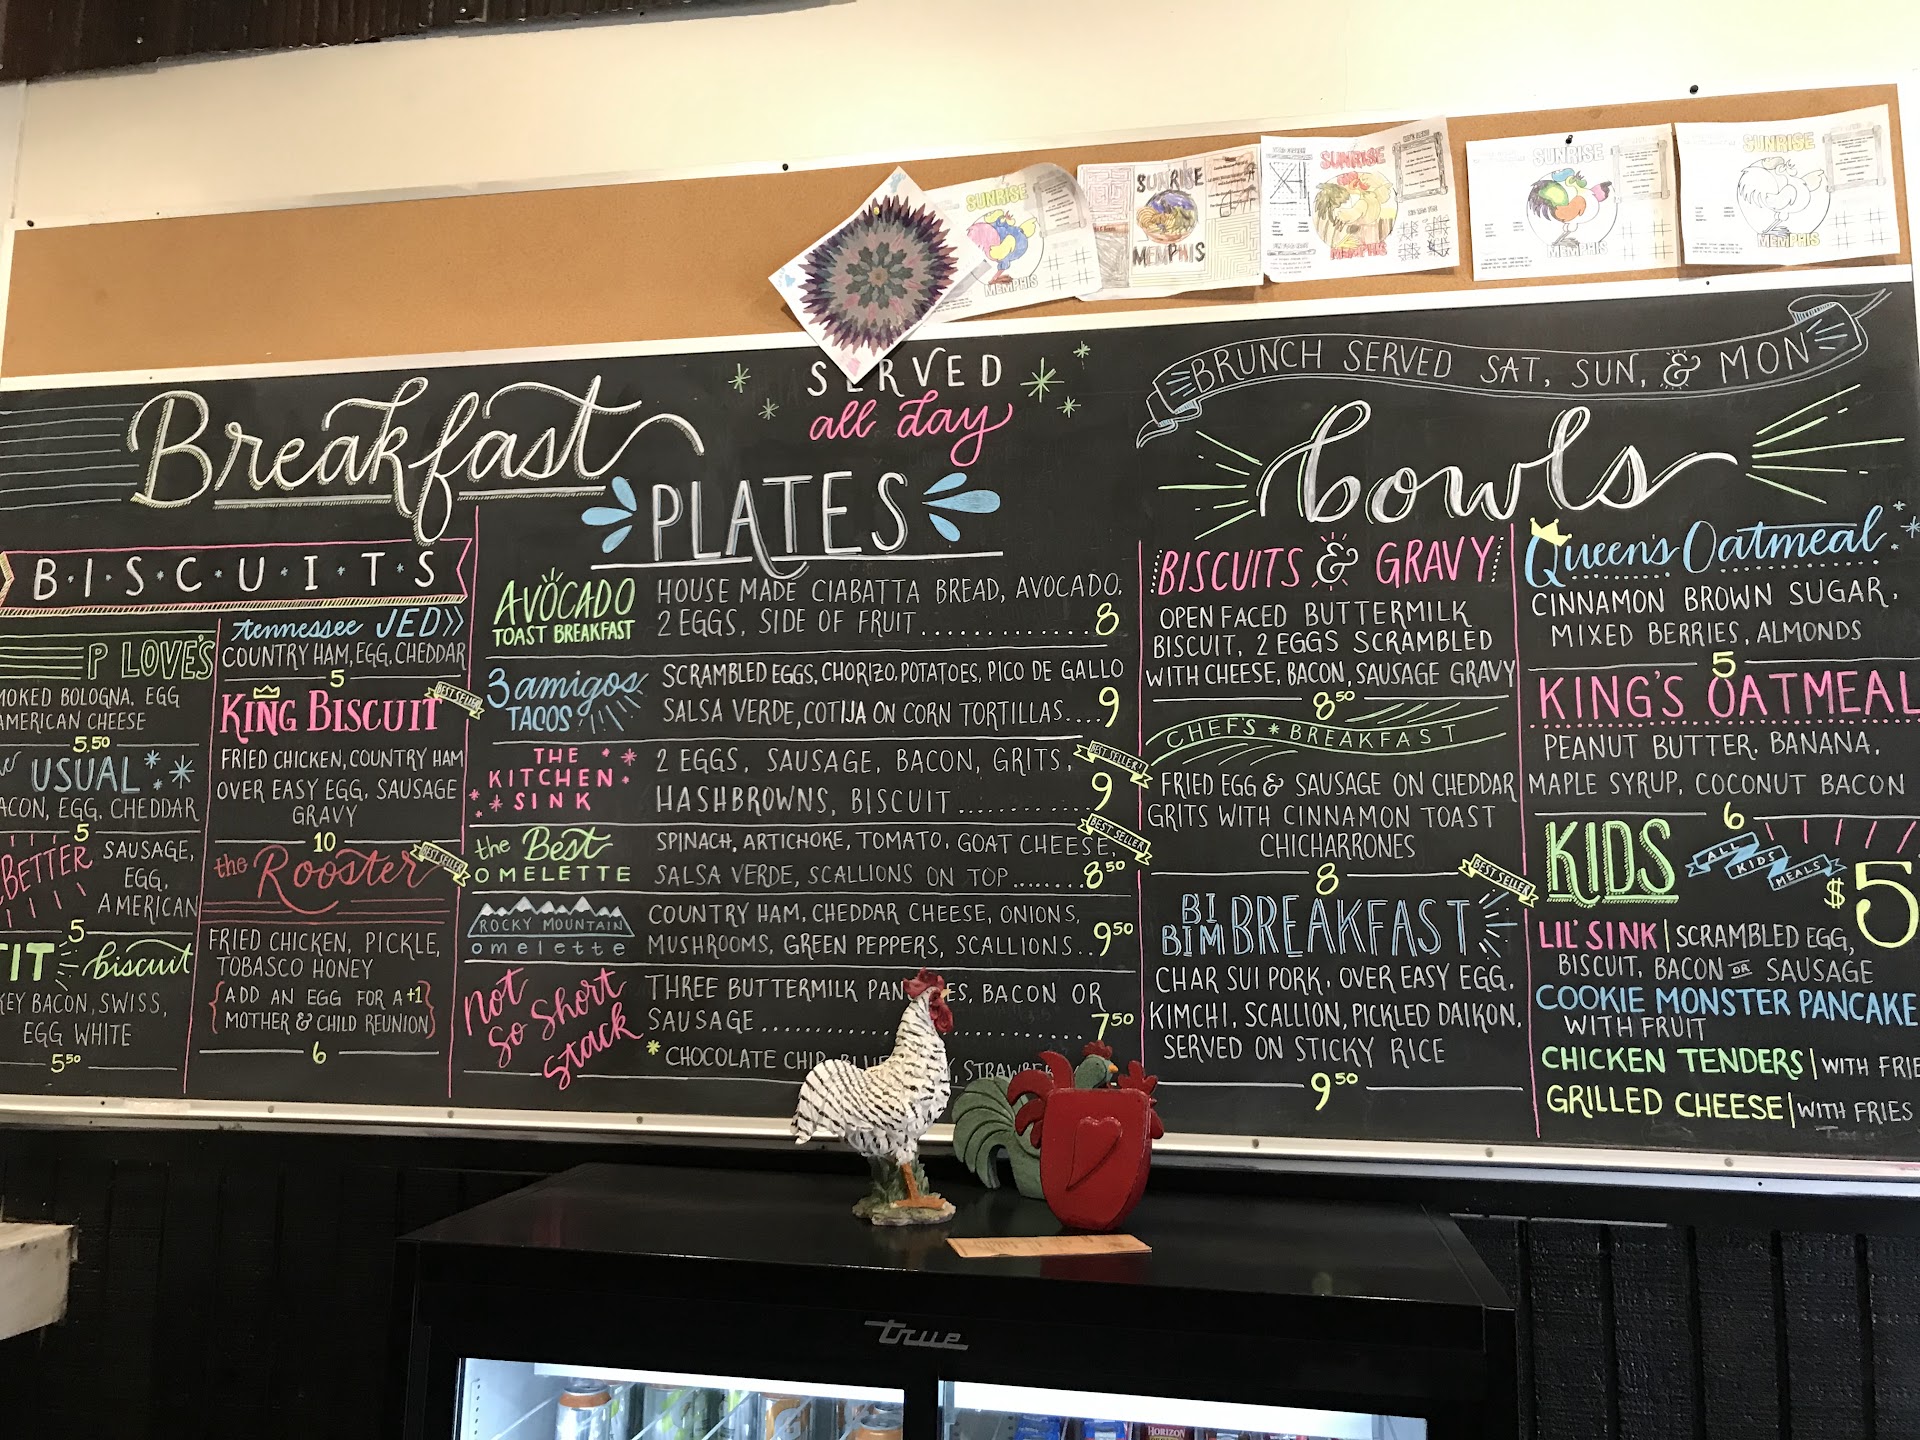 SUNRISE
MEMPHIS
SUNRISE
MEMPHIS
SUNRISE
MEMPHIS
SUNRISE
MEMPHIS
SUNRISE
MEMPHIS
Breakfast
SERVED
all day
B·I·S·C·U·I·T·S
P LOVE'S
MOKED BOLOGNA, EGG
AMERICAN CHEESE
5.50
USUAL
ACON, EGG, CHEDDAR
5
BETTER
SAUSAGE,
EGG,
AMERICAN
5
TIT biscuit
KEY BACON, SWISS,
EGG WHITE
5.50
tennessee JED
COUNTRY HAM, EGG, CHEDDAR
5
KING BISCUIT
BEST SELLER
FRIED CHICKEN, COUNTRY HAM
OVER EASY EGG, SAUSAGE
GRAVY
10
the Rooster
BEST SELLER
FRIED CHICKEN, PICKLE,
TOBASCO HONEY
{ADD AN EGG FOR A +1
MOTHER & CHILD REUNION}
6
PLATES
AVOCADO
TOAST BREAKFAST
HOUSE MADE CIABATTA BREAD, AVOCADO,
2 EGGS, SIDE OF FRUIT..............8
3 amigos
TACOS
SCRAMBLED EGGS, CHORIZO, POTATOES, PICO DE GALLO
SALSA VERDE, COTIJA ON CORN TORTILLAS....9
THE
KITCHEN
SINK
2 EGGS, SAUSAGE, BACON, GRITS,
BEST SELLER!
HASHBROWNS, BISCUIT............9
the Best
OMELETTE
SPINACH, ARTICHOKE, TOMATO, GOAT CHEESE,
BEST SELLER
SALSA VERDE, SCALLIONS ON TOP.......8.50
ROCKY MOUNTAIN
omelette
COUNTRY HAM, CHEDDAR CHEESE, ONIONS,
MUSHROOMS, GREEN PEPPERS, SCALLIONS..9.50
Not
So Short
Stack
THREE BUTTERMILK PAN ES, BACON OR
SAUSAGE......................7.50
*CHOCOLATE CHIP, BLUE Y, STRAWBER
BRUNCH SERVED SAT, SUN, & MON
bowls
BISCUITS & GRAVY
OPEN FACED BUTTERMILK
BISCUIT, 2 EGGS SCRAMBLED
WITH CHEESE, BACON, SAUSAGE GRAVY
8.50
CHEF'S * BREAKFAST
FRIED EGG & SAUSAGE ON CHEDDAR
GRITS WITH CINNAMON TOAST
CHICHARRONES
8
BEST SELLER
BI BIM BREAKFAST
CHAR SUI PORK, OVER EASY EGG,
KIMCHI, SCALLION, PICKLED DAIKON,
SERVED ON STICKY RICE
9.50
Queen's Oatmeal
CINNAMON BROWN SUGAR,
MIXED BERRIES, ALMONDS
5
KING'S OATMEAL
PEANUT BUTTER, BANANA,
MAPLE SYRUP, COCONUT BACON
6
KIDS
ALL KIDS MEALS
$5
LIL' SINK | SCRAMBLED EGG,
BISCUIT, BACON OR SAUSAGE
COOKIE MONSTER PANCAKE
WITH FRUIT
CHICKEN TENDERS | WITH FRIE
GRILLED CHEESE | WITH FRIES
true
HORIZON